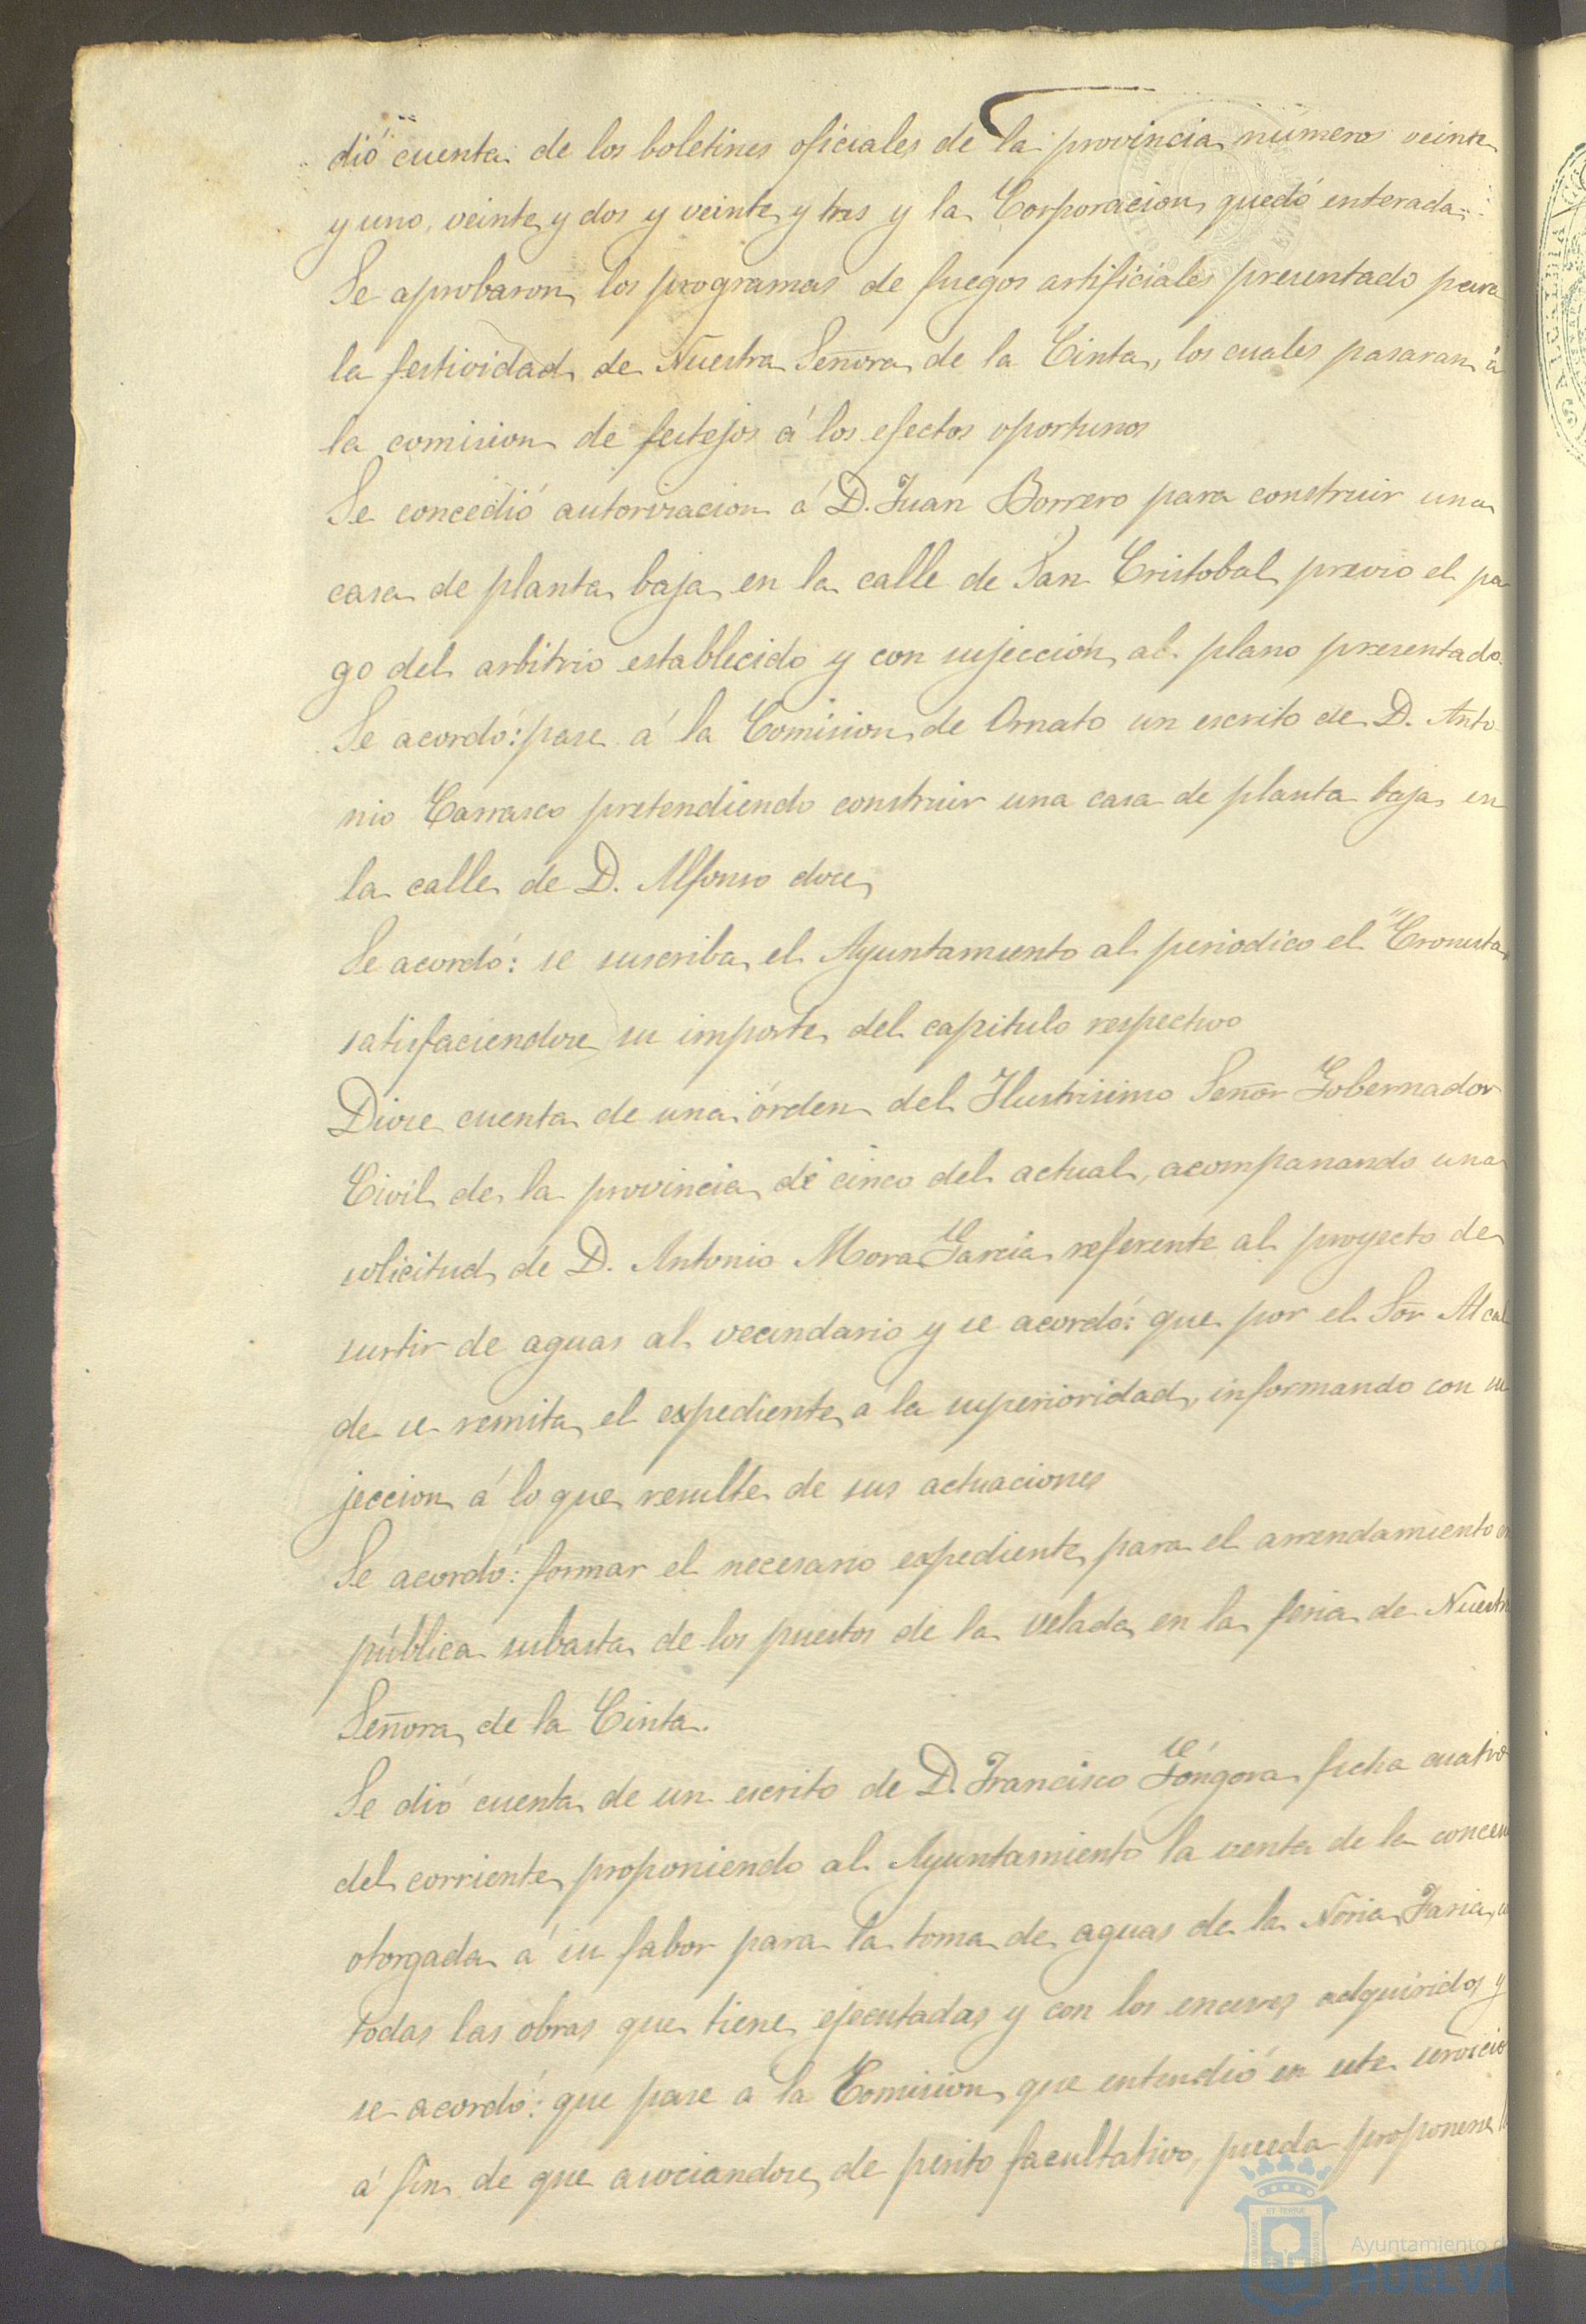 dió cuenta de los boletines oficiales de la provincia números veinte
y uno, veinte y dos y veinte y tres y la Corporacion quedó enterada.
Se aprobaron los programas de fuegos artificiales presentado para
la festividad de Nuestra Señora de la Cinta, los cuales pasaran á
la comision de festejos á los efectos oportunos
Se concedió autorizacion á D. Juan Borrero para construir una
casa de planta baja en la calle de San Cristobal previo el pa
go del arbitrio establecido y con sujeccion al plano presentado.
Se acordó: pase á la Comision de Ornato un escrito de D. Anto
nio Carrasco pretendiendo construir una casa de planta baja en
la calle de D. Alfonso doce
Se acordó: se suscriba el Ayuntamiento al periodico el "Cronista
satisfaciendose su importe del capitulo respectivo
Diose cuenta de una órden del Ilustrisimo Señor Gobernador
Civil de la provincia de cinco del actual, acompañando una
solicitud de D. Antonio Mora Garcia referente al proyecto de
surtir de aguas al vecindario y se acordó: que por el Sor Alcal
de se remita el expediente á la superioridad, informando con su
jeccion á lo que resulte de sus actuaciones
Se acordó: formar el necesario expediente para el arrendamiento en
pública subasta de los puestos de la velada en la feria de Nuestra
Señora de la Cinta.
Se dió cuenta de un escrito de D. Francisco Góngora fecha cuatro
del corriente proponiendo al Ayuntamiento la venta de la
otorgada á su fabor para la toma de aguas de la Noria
todas las obras que tiene ejecutadas y con los enseres adquiridos y
se acordó: que pase a la Comision que entendió en este servicio
á fin de que asociandose de perito facultativo, pueda proponerse
Ayuntamiento de
HUELVA